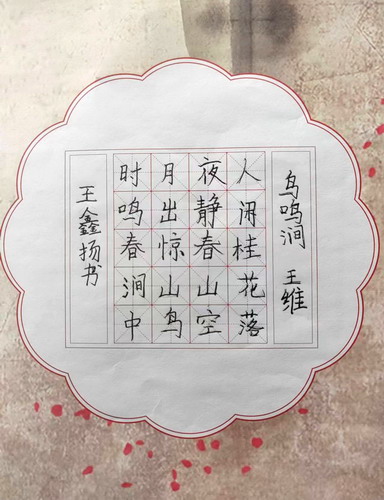 鸟鸣涧 王维
人闲桂花落
夜静春山空
月出惊山鸟
时鸣春涧中
王鑫扬书